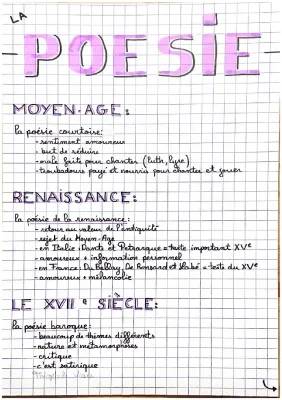 LA
POESIE
MOYEN-AGE:
la poésie courtoise:
- sentiment amoureux
- but de séduire
- mais faite pour chanter (luth, lyre)
- troubadours payé et nourris pour chanter et jouer
RENAISSANCE:
la poésie de la renaissance:
- retour au valeur de l'antiquité
- rejet du Moyen-Age
- en Italie: Dante et Petrarque = texte important XVe
- amoureux + information personnel
- en France: Du Bellay, De Ronsard et Labé = texte du XVe
- amoureux + mélancolie
LE XVIIe SIÈCLE:
la poésie baroque:
- beaucoup de thèmes différents
- nature et métamorphoses
- critique
- c'est satirique